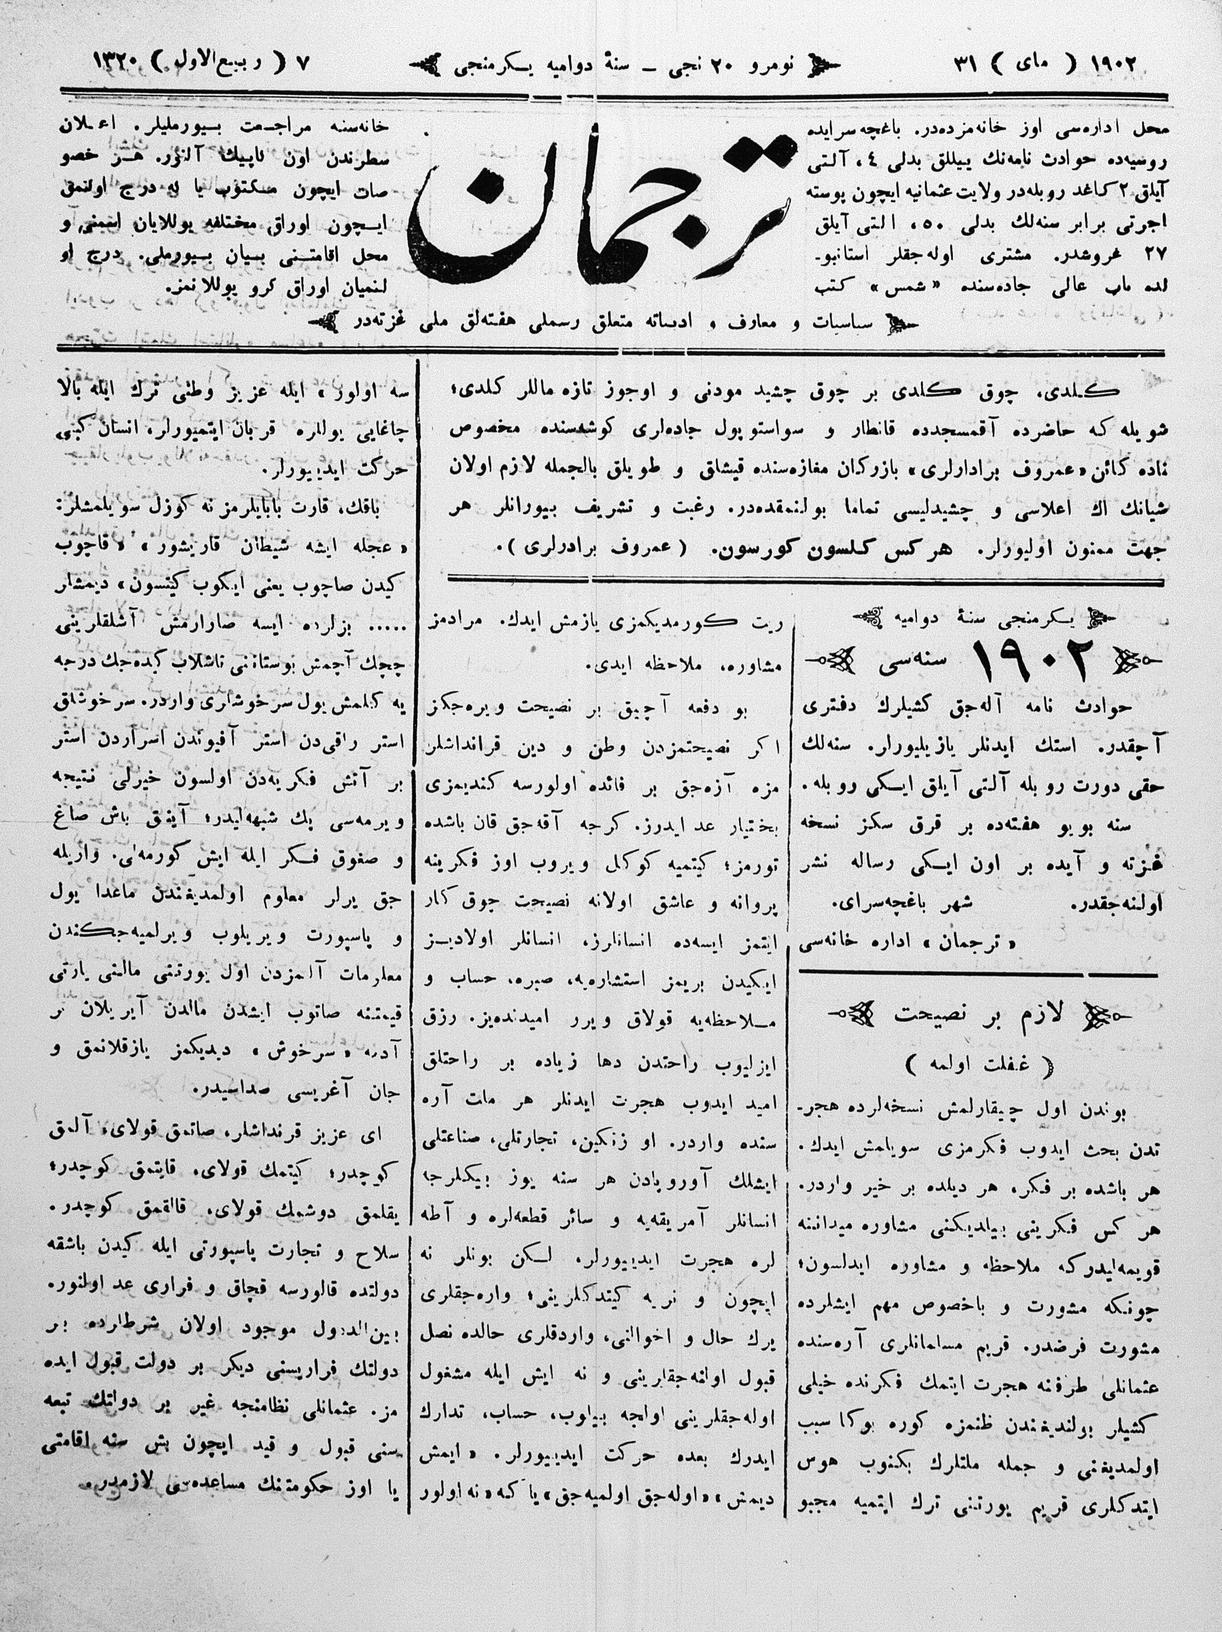 ١٩٠٢ ( ماى ) ٣١
نومرو ٢٠ نجى ــ سنۀ دواميه يكرمنجى
٧ ( ربيع الاول ) ١٣٢٠
محل اداره‌سى اوز خانه‌مزده‌در. باغچه‌سرايده
روسيه‌ده حوادث نامه‌نك ييللق بدلى ٤، آلتى
آيلق ٢ كاغد روبله‌در ولايت عثمانيه ايچون پوسته
اجرتى برابر سنه‌لك بدلى ٥٠، التى آيلق
٢٧ غروشدر. مشترى اوله‌جقلر استانبو-
لده باب عالى جاده‌سنده «شمس» كتب
خانه‌سنه مراجعت بيورمليلر. اعلان
سطرندن اون كاپيك آلنور. هر خصو
صات ايچون مكتوب يا له درج اولنمق
ايچون اوراق مختلفه يوللايان اسمنى و
محل اقامتنى بيان بيورملى. درج او
لنميان اوراق كرو يوللانمز.
ترجمان
سياسيات و معارف و ادبياته متعلق رسملى هفته‌لق ملى غزته‌در
كلدى، چوق كلدى بر چوق چشيد مودنى و اوجوز تازه ماللر كلدى؛
شويله كه حاضرده آقمسجدده قانطار و سواستوپول جاده‌لرى كوشه‌سنده مخصوص
ناده كائن «عمروف برادارلرى» بازركان مغازه‌سنده قيشلق و طويلق بالجمله لازم اولان
شيانك اك اعلاسى و چشيدليسى تماما بولنمقده‌در. رغبت و تشريف بيورانلر هر
جهت ممنون اوليورلر. هر كس كلسون كورسون. ( عمروف برادرلرى ).
يكرمنجى سنۀ دواميه
١٩٠٢ سنه‌سى
حوادث نامه آله‌جق كشيلرك دفترى
آچقدر. استك ايدنلر يازيليورلر. سنه‌لك
حقى دورت روبله آلتى آيلق ايكى روبله.
سنه بويو هفته‌ده بر قرق سكز نسخه
غزته و آيده بر اون ايكى رساله نشر
اولنه‌جقدر. شهر باغچه‌سراى.
« ترجمان » اداره خانه‌سى
لازم بر نصيحت
( غفلت اولمه )
بوندن اول چيقارلمش نسخه‌لرده هجر-
تدن بحث ايدوب فكرمزى سويلمش ايدك.
هر باشده بر فكر، هر ديلده بر خير واردر.
هر كس فكرينى بيلديكنى مشاوره ميداننه
قويمه‌ليدركه ملاحظه و مشاوره ايدلسون؛
چونكه مشورت و باخصوص مهم ايشلرده
مشورت فرضدر. قريم مسلمانلرى آره‌سنده
عثمانلى طرفنه هجرت ايتمك فكرنده خيلى
كشيلر بولنديغندن ظنمزه كوره بوكا سبب
اولمديغنى و جمله ملتلرك بكنوب هوس
ايتدكلرى قريم يورتنى ترك ايتميه مجبو
ريت كورمديكمزى يازمش ايدك. مرادمز
مشاوره، ملاحظه ايدى.
بو دفعه آچيق بر نصيحت ويره‌جكز
اكر نصيحتمزدن وطن و دين قرانداشلر
مزه آزه‌جق بر فائده اولورسه كنديمزى
بختيار عد ايدرز. كرجه آقه‌جق قان باشده
تورمز؛ كيتميه كوكل ويروب اوز فكرينه
پروانه و عاشق اولانه نصيحت چوق كار
ايتمز ايسه‌ده انسانلرز، انسانلر اولاديز
ايكيدن بريمز استشاره‌يه، صبره، حساب و
ملاحظه‌يه قولاق ويرر اميدنده‌يز. رزق
ايزليوب راحتدن دها زياده بر راحتلق
اميد ايدوب هجرت ايدنلر هر ملت آره
سنده واردر. او زنكين، تجارتلى، صناعتلى
ايشلك آوروپادن هر سنه يوز بيكلرجه
انسانلر آمريقه‌يه و سائر قطعه‌لره و آطه
لره هجرت ايدييورلر. لكن بونلر نه
ايچون و نريه كيتدكلرينى؛ واره‌جقلرى
يرك حال و احوالنى، واردقلرى حالده نصل
قبول اولنه‌جقلرينى و نه ايش ايله مشغول
اوله‌جقلرينى اولجه بيلوب، حساب، تدارك
ايدرك بعده حركت ايدييورلر. « ايمش
ديمش» «اوله‌جق اولميه‌جق» يا كه «نه اولور
سه اولور» ايله عزيز وطنى ترك ايله بالا
چاغايى يوللره قربان ايتميورلر، انسان كبى
حركت ايدييورلر.
باقك، قارت بابايلرمز نه كوزل سويلمشلر:
« عجله ايشه شيطان قاريشور» «قاچوب
كيدن صاچوب يعنى ايكوب كيتسون» ديمشلر
..... بزلرده ايسه صارارمش آشلقلرينى
چچك آچمش بوستاننى تاشلاب كيده‌جك درجه
يه كلمش يول سرخوشلرى واردر. سرخوشلق
استر راقى‌دن استر آفيوندن اسراردن استر
بر آتش فكريه‌دن اولسون خيرلى نتيجه
ويرمه‌سى پك شبهه‌ليدر؛ آيق باش صاغ
و صغوق فكر ايله ايش كورمه‌لى. واريله
جق يرلر معلوم اولمديغندن ماعدا يول
و پاسپورت ويريلوب ويرلميه‌جكندن
معلومات آلمزدن اول يورتنى مالنى يارتى
قيمتنه صاتوب ايشدن مالدن آيريلان بر
آدمه «سرخوش» ديديكمز يازقلانمق و
جان آغريسى صداسيدر.
اى عزيز قرنداشلر، صاتمق قولاى، آلمق
كوچدر؛ كيتمك قولاى، قايتمق كوچدر؛
يقلمق دوشمك قولاى، قالقمق كوچدر.
سلاح و تجارت پاسپورتى ايله كيدن باشقه
دولتده قالورسه قچاق و فرارى عد اولنور.
بين الدول موجود اولان شرطلرده بر
دولتك فراريسنى ديكر بر دولت قبول ايده
مز. عثمانلى نظامنجه غير بر دولتك تبعه
سنى قبول و قيد ايچون بش سنه اقامتى
يا اوز حكومتنك مساعده‌سى لازمدر.